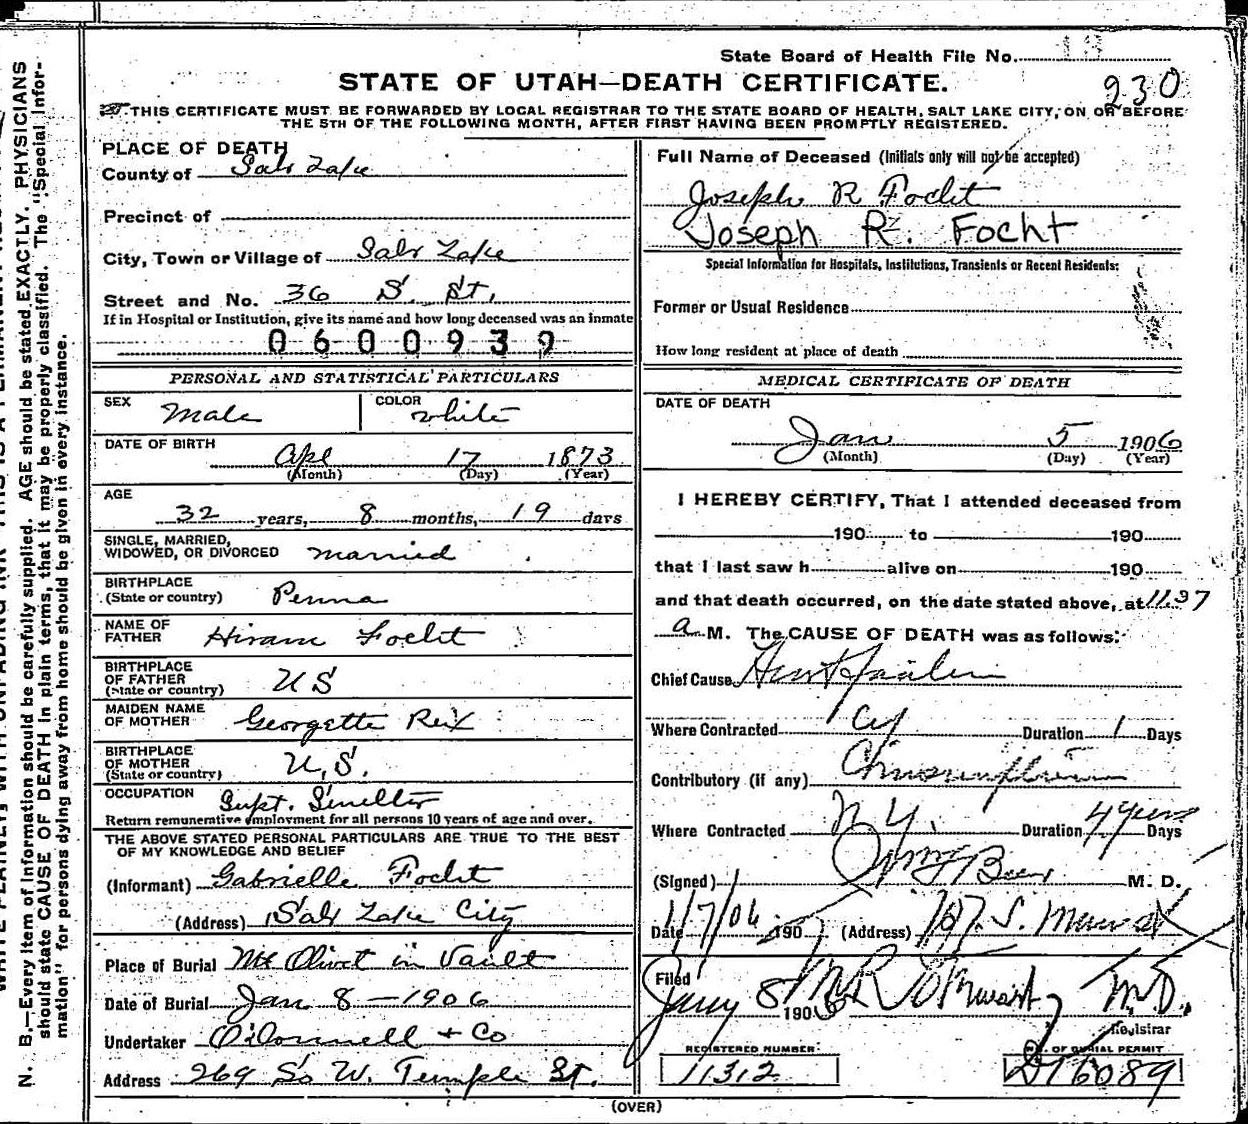 State Board of Health File No.
230
STATE OF UTAH—DEATH CERTIFICATE.
THIS CERTIFICATE MUST BE FORWARDED BY LOCAL REGISTRAR TO THE STATE BOARD OF HEALTH, SALT LAKE CITY, ON OR BEFORE
THE 5TH OF THE FOLLOWING MONTH, AFTER FIRST HAVING BEEN PROMPTLY REGISTERED.
N. B.—Every item of information should be carefully supplied. AGE should be stated EXACTLY. PHYSICIANS
should state CAUSE OF DEATH in plain terms, that it may be properly classified. The "Special Infor-
mation" for persons dying away from home should be given in every instance.
PLACE OF DEATH
County of Salt Lake
Precinct of
City, Town or Village of Salt Lake
Street and No. 36 S. St.
If in Hospital or Institution, give its name and how long deceased was an inmate
0600939
PERSONAL AND STATISTICAL PARTICULARS
SEX Male COLOR white
DATE OF BIRTH Apl 17 1873
(Month) (Day) (Year)
AGE
32 years, 8 months, 19 days
SINGLE, MARRIED,
WIDOWED, OR DIVORCED married
BIRTHPLACE
(State or country) Penna
NAME OF
FATHER Hiram Focht
BIRTHPLACE
OF FATHER
(State or country) U S
MAIDEN NAME
OF MOTHER Georgette Reix
BIRTHPLACE
OF MOTHER
(State or country) U.S.
OCCUPATION Supt. Smelter
Return remunerative employment for all persons 10 years of age and over.
THE ABOVE STATED PERSONAL PARTICULARS ARE TRUE TO THE BEST
OF MY KNOWLEDGE AND BELIEF
(Informant) Gabrielle Focht
(Address) Salt Lake City
Place of Burial Mt Olivet in Vault
Date of Burial Jan 8 - 1906
Undertaker O'Donnell & Co
Address 269 So W. Temple St.
Full Name of Deceased (Initials only will not be accepted)
Joseph R Focht
Joseph R. Focht
Special Information for Hospitals, Institutions, Transients or Recent Residents:
Former or Usual Residence
How long resident at place of death
MEDICAL CERTIFICATE OF DEATH
DATE OF DEATH
Jan 5 1906
(Month) (Day) (Year)
I HEREBY CERTIFY, That I attended deceased from
190 to 190
that I last saw h alive on 190
and that death occurred, on the date stated above, at 11.37
a M. The CAUSE OF DEATH was as follows:
Chief Cause Heart failure
Where Contracted Cy Duration 1 Days
Contributory (if any)
Where Contracted N.Y. Duration 4 years Days
(Signed) Beer M. D.
Date 1/7/06 190 (Address) 707. S.
Filed
Jany 8 1906 M.D.,
Registrar
REGISTERED NUMBER
11312
NO. OF BURIAL PERMIT
216089
(OVER)